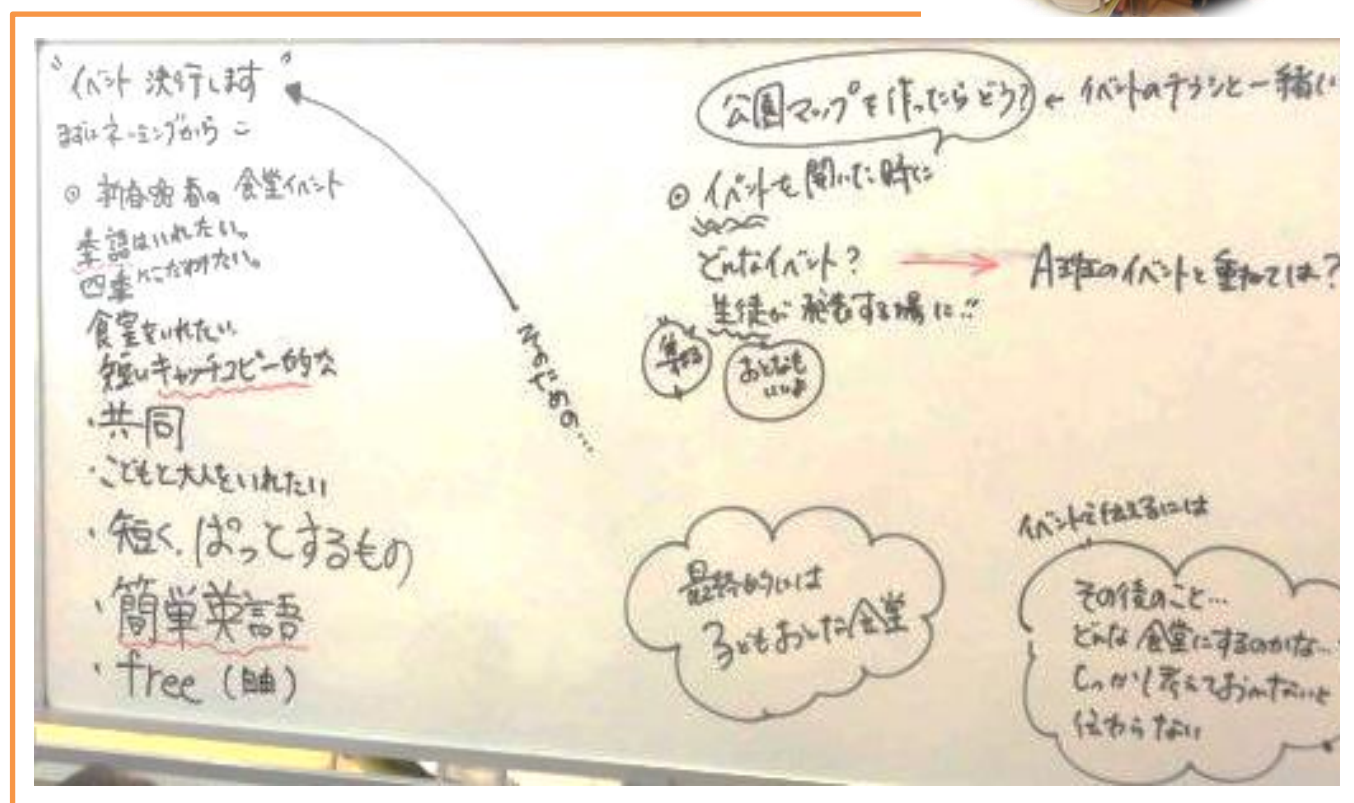 "イベント決行します"
まずはネーミングから
◎新春の食堂イベント
季語はいれたい。
四季にこだわりたい。
食堂をいれたい
短いキャッチコピー的な
・共同
・こどもと大人をいれたい
・短く、ぱっとするもの
・簡単英語
・free (自由)
そのための…
公園マップを作ったらどう? ← イベントのチラシと一緒に
◎イベントを開いた時に
どんなイベント? → A班のイベントと重ねては?
生徒が発表する場に!!
集まる
おとなも
いいよ
最終的には
子どもおとな食堂
イベントを伝えるには
その後のこと…
どんな食堂にするのかな…
しっかり考えておかないと
伝わらない